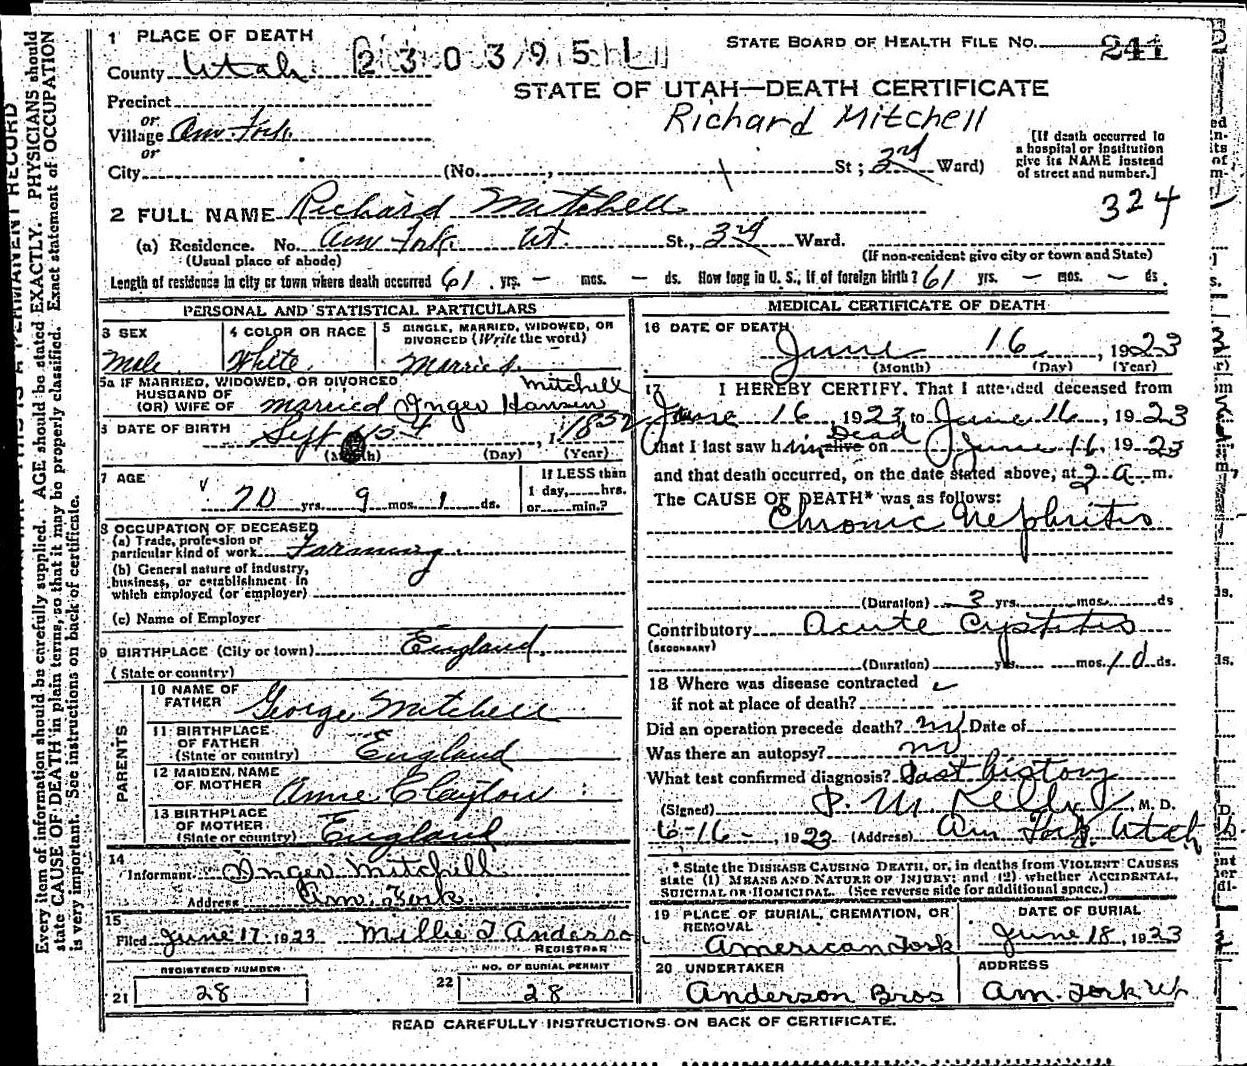 1 PLACE OF DEATH
2303951
STATE BOARD OF HEALTH FILE NO. 241
County Utah
STATE OF UTAH—DEATH CERTIFICATE
Precinct
Richard Mitchell
or
Village Am Fork
or
City (No. , St; 3rd Ward)
[If death occurred in
a hospital or institution
give its NAME instead
of street and number.]
2 FULL NAME Richard Mitchell
324
(a) Residence. No. Am Fork Ut. St., 3rd Ward.
(Usual place of abode) (If non-resident give city or town and State)
Length of residence in city or town where death occurred 61 yrs. - mos. - ds. How long in U. S., if of foreign birth? 61 yrs. - mos. - ds.
PERSONAL AND STATISTICAL PARTICULARS
3 SEX
Male
4 COLOR OR RACE
White
5 SINGLE, MARRIED, WIDOWED, OR
DIVORCED (Write the word)
Married
5a IF MARRIED, WIDOWED, OR DIVORCED
HUSBAND OF
(OR) WIFE OF Married Inger Hansen Mitchell
6 DATE OF BIRTH Sept 15 1852
(Month) (Day) (Year)
7 AGE
70 yrs. 9 mos. 1 ds.
If LESS than
1 day, hrs.
or min.?
8 OCCUPATION OF DECEASED
(a) Trade, profession or
particular kind of work Farming
(b) General nature of industry,
business, or establishment in
which employed (or employer)
(c) Name of Employer
9 BIRTHPLACE (City or town) England.
(State or country)
PARENTS
10 NAME OF
FATHER George Mitchell
11 BIRTHPLACE
OF FATHER
(State or country) England
12 MAIDEN NAME
OF MOTHER Anne Clayton
13 BIRTHPLACE
OF MOTHER
(State or country) England
14
Informant Inger Mitchell
Address Am. Fork
15
Filed June 17, 1923 Millie T Anderso
REGISTRAR
REGISTERED NUMBER
21 28
NO. OF BURIAL PERMIT
22 28
MEDICAL CERTIFICATE OF DEATH
16 DATE OF DEATH
June 16, 1923
(Month) (Day) (Year)
17 I HEREBY CERTIFY, That I attended deceased from
June 16 1923, to June 16, 1923
that I last saw him alive Dead on June 16, 1923
and that death occurred, on the date stated above, at 2 a m.
The CAUSE OF DEATH* was as follows:
Chronic Nephritis
(Duration) 3 yrs. mos. ds
Contributory Acute Cystitis
(SECONDARY)
(Duration) yrs. mos. 10 ds.
18 Where was disease contracted
if not at place of death?
Did an operation precede death? no Date of
Was there an autopsy? no
What test confirmed diagnosis? Past history
(Signed) P. M. Kelly M. D.
6-16-, 1923 (Address) Am Fork Utah
* State the DISEASE CAUSING DEATH, or, in deaths from VIOLENT CAUSES
state (1) MEANS AND NATURE OF INJURY; and (2) whether ACCIDENTAL,
SUICIDAL OR HOMICIDAL. (See reverse side for additional space.)
19 PLACE OF BURIAL, CREMATION, OR
REMOVAL
American Fork
DATE OF BURIAL
June 18, 1923
20 UNDERTAKER
Anderson Bros
ADDRESS
Am. Fork Ut
READ CAREFULLY INSTRUCTIONS ON BACK OF CERTIFICATE.
THIS IS A PERMANENT RECORD
Every item of information should be carefully supplied. AGE should be stated EXACTLY. PHYSICIANS should
state CAUSE OF DEATH in plain terms, so that it may be properly classified. Exact statement of OCCUPATION
is very important. See instructions on back of certificate.